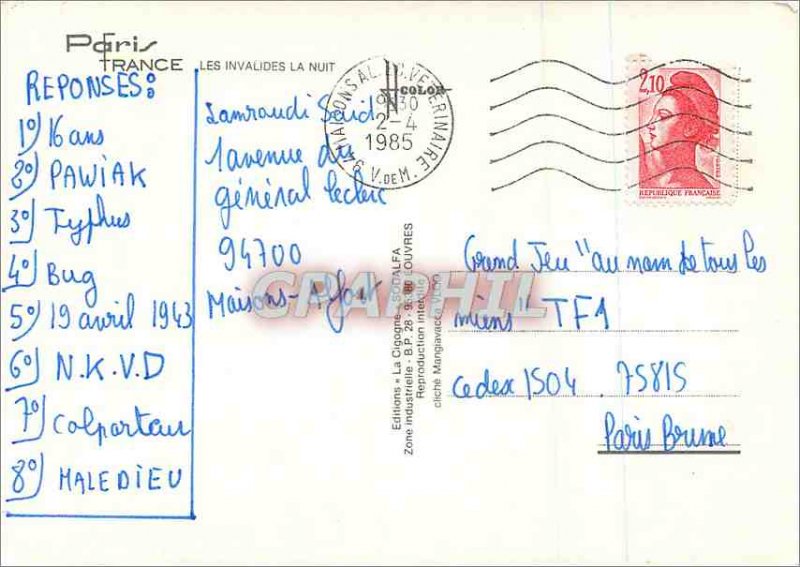 Paris
FRANCE
LES INVALIDES LA NUIT
REPONSES:
1°) 16 ans
2°) PAWIAK
3°) Typhus
4°) Bug
5°) 19 avril 1943
6°) N.K.V.D
7°) Colporteur
8°) MALEDIEU
Lamraudi Said
1 avenue du
général leclerc
94700
Maisons-Alfort
COLOR
9H30
2-4
1985
94 V. DE M.
2,10
REPUBLIQUE FRANÇAISE
Editions « La Cigogne » SODALFA
Zone industrielle - B.P. 28 - 95380 LOUVRES
Reproduction interdite
cliché Mangiavacca
CPAPHIL
Grand Jeu "au nom de tous les
miens" TF1
Cedex 1504 . 75815
Paris Brune